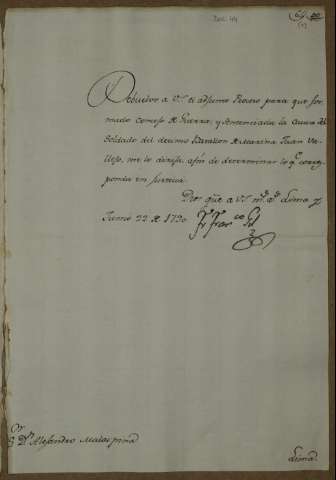 Doc. 44
Debuelvo a V.S. el adjunto Proceso para que for-
mado Consejo de Guerra, y sentenciada la Causa del
Soldado del decimo Batallon de Marina Juan Va-
llejo, me lo dirija, afin de determinar lo q.e corres-
ponda en justicia.
Dios gûe a V.S. m.s a.s Lima y
Junio 22 de 1790
Fr. Fran.co Gil
S.or D.n Alejandro Malaspina
Lima